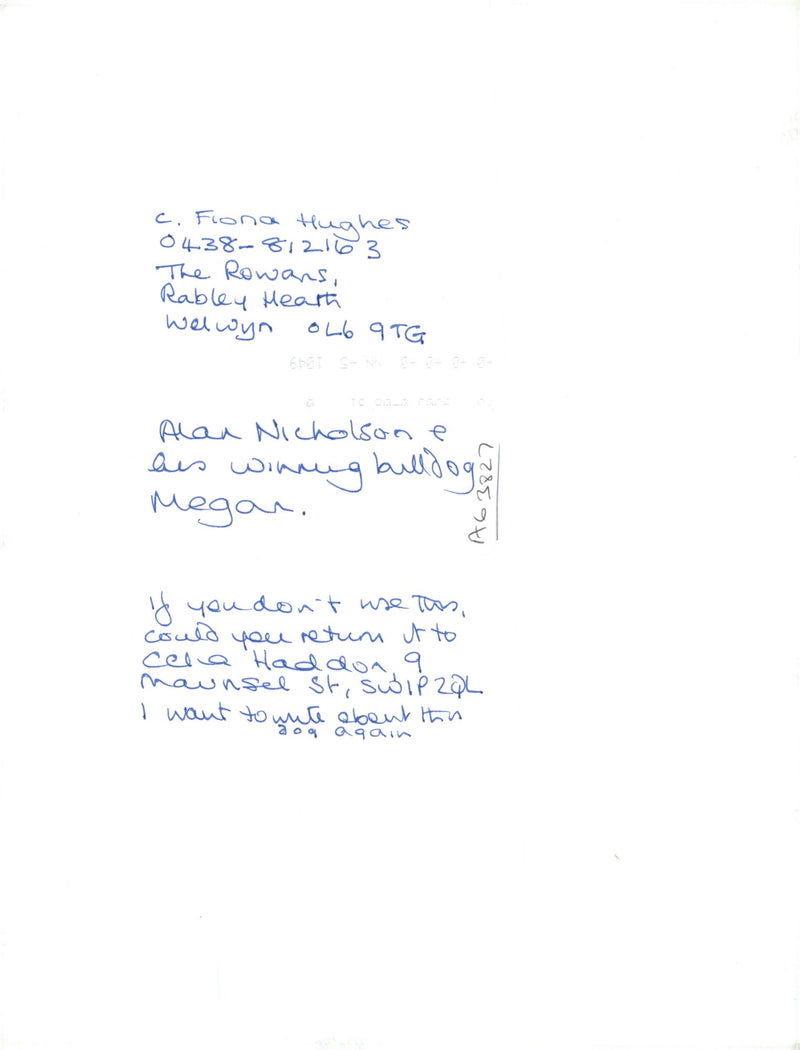 c. Fiona Hughes
0438-812163
The Rowans,
Rabley Heath
Welwyn OL6 9TG
Alan Nicholson &
his winning bulldog
Megan.
A63827
If you don't use this,
could you return it to
Celia Haddon, 9
Maunsel St, SW1P 2QL
I want to write about this
dog again